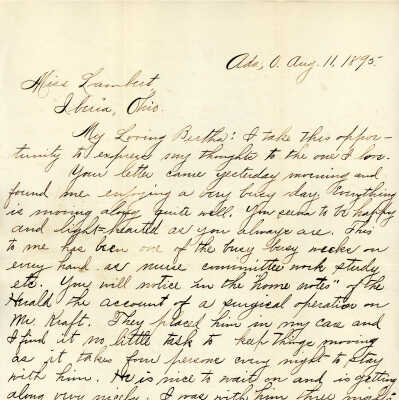 Ada, O. Aug. 11, 1895.
Miss Lambert,
Iberia, Ohio.
My Loving Bertha: I take this oppor-
tunity to express my thoughts to the one I love.
Your letter came yesterday morning and
found me enjoying a very busy day. Everything
is moving along quite well. You seem to be happy
and light-hearted as you always are. This
to me has been one of the busy busy weeks on
every hand as nurse committee work study
etc. You will notice in the "home notes" of the
Herald the account of a surgical operation on
Mr. Kraft. They placed him in my care and
I find it no little task to keep things moving
as it takes four persons every night to stay
with him. He is nice to wait on and is getting
along very nicely. I was with him three nights